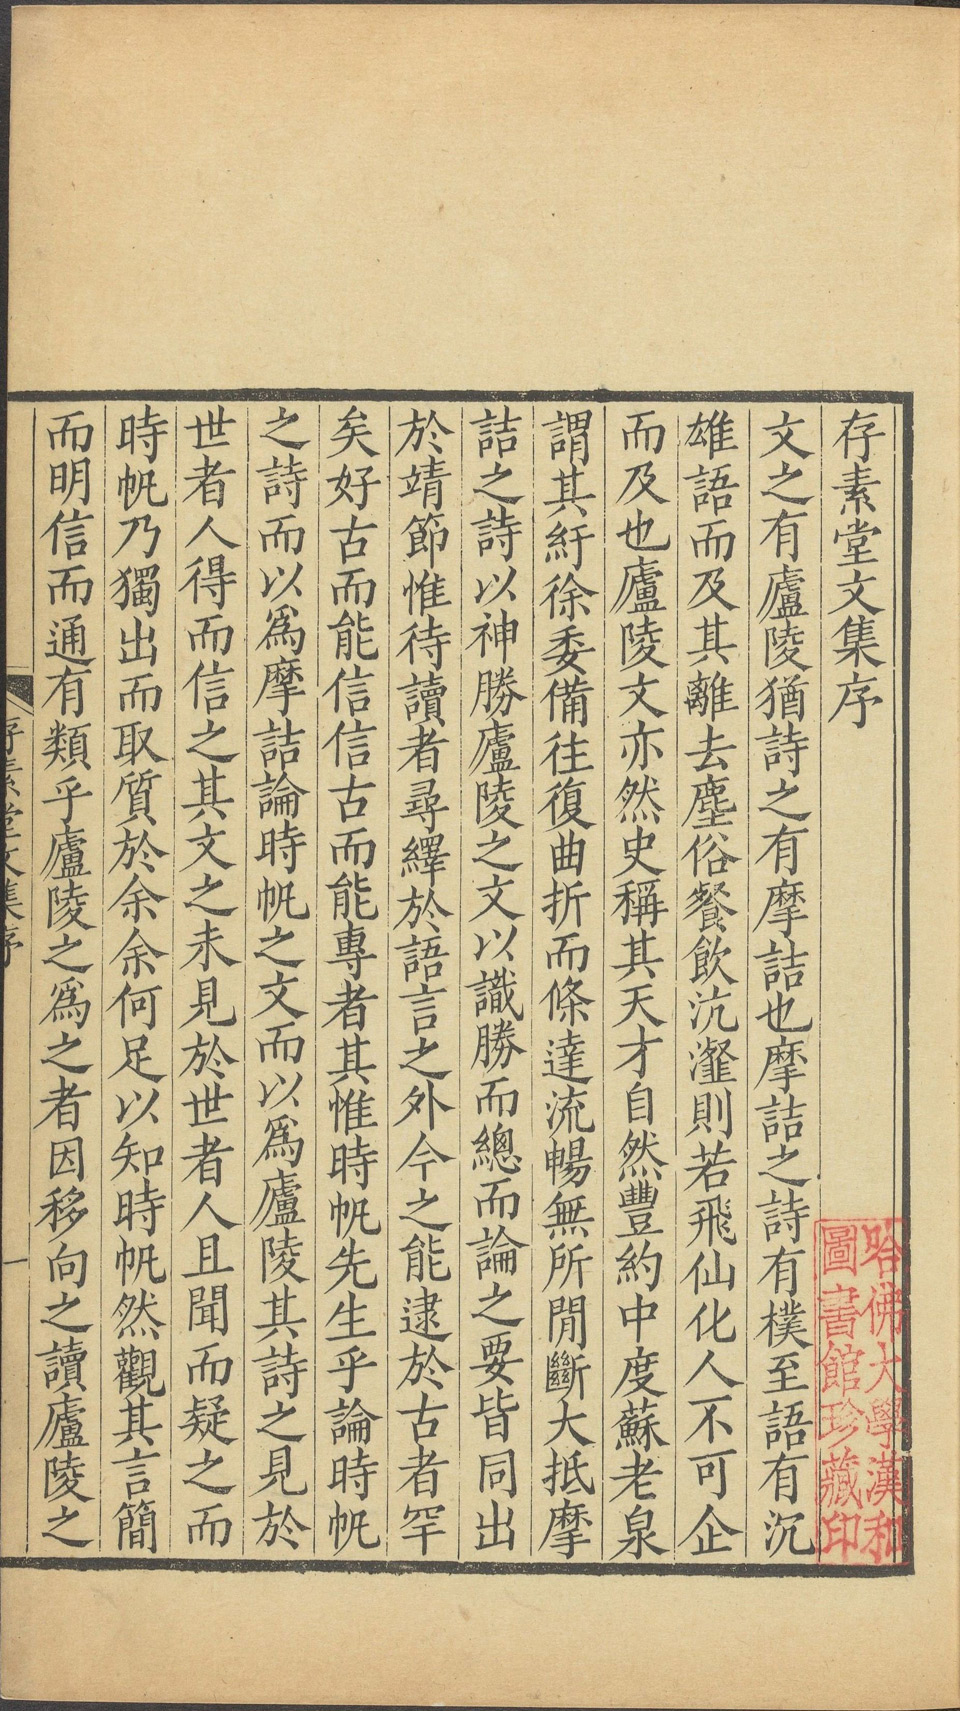 存素堂文集序
文之有廬陵猶詩之有摩詰也摩詰之詩有樸至語有沉
雄語而及其離去塵俗餐飲沆瀣則若飛仙化人不可企
而及也廬陵文亦然史稱其天才自然豐約中度蘇老泉
謂其紆徐委備往復曲折而條達流暢無所閒斷大抵摩
詰之詩以神勝廬陵之文以識勝而總而論之要皆同出
於靖節惟待讀者尋繹於語言之外今之能逮於古者罕
矣好古而能信信古而能專者其惟時帆先生乎論時帆
之詩而以為摩詰論時帆之文而以為廬陵其詩之見於
世者人得而信之其文之未見於世者人且聞而疑之而
時帆乃獨出而取質於余余何足以知時帆然觀其言簡
而明信而通有類乎廬陵之為之者因移向之讀廬陵之
存素堂文集序
一
哈佛大學漢和
圖書館珍藏印